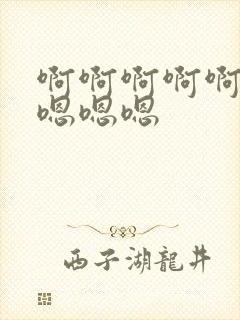 啊啊啊啊啊
嗯嗯嗯
西子湖龍井